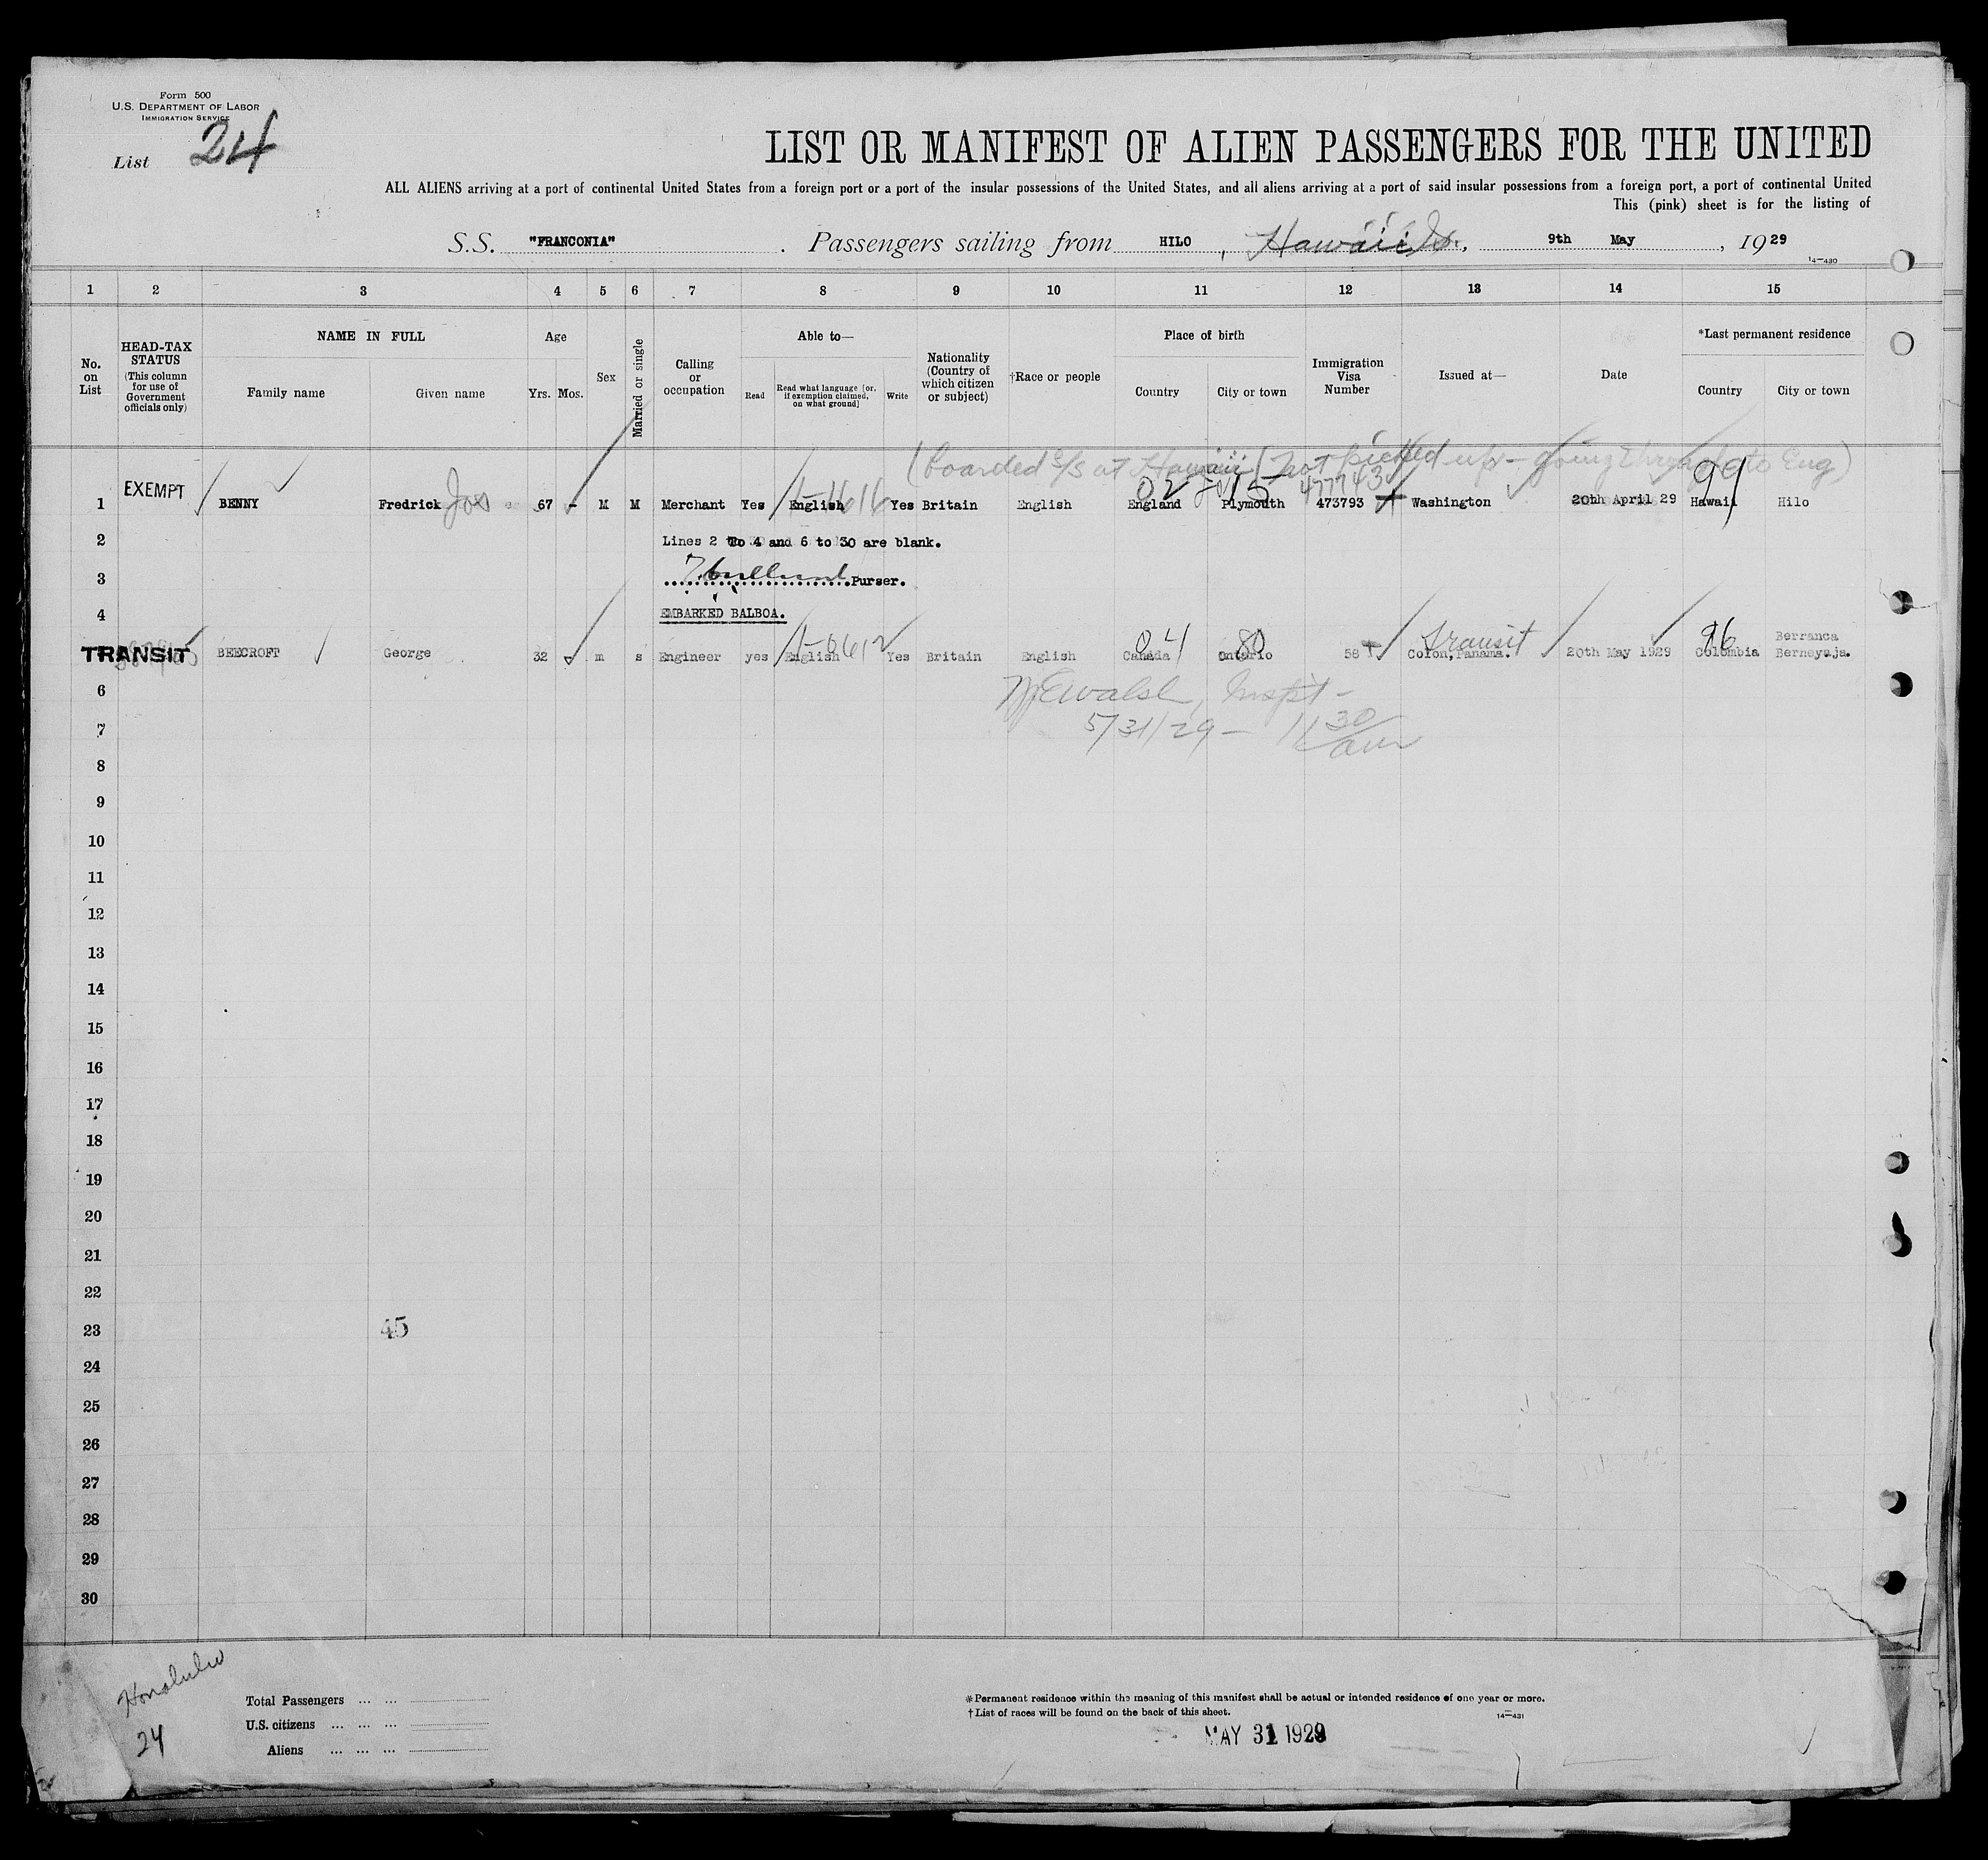 Form 500
U.S. DEPARTMENT OF LABOR
IMMIGRATION SERVICE
List 24
LIST OR MANIFEST OF ALIEN PASSENGERS FOR THE UNITED
ALL ALIENS arriving at a port of continental United States from a foreign port or a port of the insular possessions of the United States, and all aliens arriving at a port of said insular possessions from a foreign port, a port of continental United
This (pink) sheet is for the listing of
S.S. "FRANCONIA". Passengers sailing from HILO, Hawaii Is., 9th May, 1929
14—430
1 2 3 4 5 6 7 8 9 10 11 12 13 14 15
No. on List
HEAD-TAX STATUS (This column for use of Government officials only)
NAME IN FULL
Family name Given name
Age
Yrs. Mos.
Sex
Married or single
Calling or occupation
Able to—
Read Read what language [or, if exemption claimed, on what ground] Write
Nationality (Country of which citizen or subject)
†Race or people
Place of birth
Country City or town
Immigration Visa Number
Issued at—
Date
*Last permanent residence
Country City or town
(boarded s/s at Hawaii (not picked up - going through to Eng)
477743
02 15 99
1 EXEMPT BENNY Fredrick Jos 67 - M M Merchant Yes English Yes Britain English England Plymouth 473793 Washington 20th April 29 Hawaii Hilo
2 Lines 2 To 4 and 6 to 30 are blank.
3 Purser.
4 EMBARKED BALBOA.
04 80 Transit 96 Berranca
TRANSIT BEECROFT George 32 m s Engineer yes English Yes Britain English Canada Ontario 58 Colon, Panama. 20th May 1929 Colombia Berneyaja.
6 Walsh, Inspt -
7 5/31/29 - 11 30 am
8
9
10
11
12
13
14
15
16
17
18
19
20
21
22
23 45
24
25
26
27
28
29
30
Honolulu
24
Total Passengers ... ...
U.S. citizens ... ... ...
Aliens ... ... ...
*Permanent residence within the meaning of this manifest shall be actual or intended residence of one year or more.
†List of races will be found on the back of this sheet.
14—431
MAY 31 1929